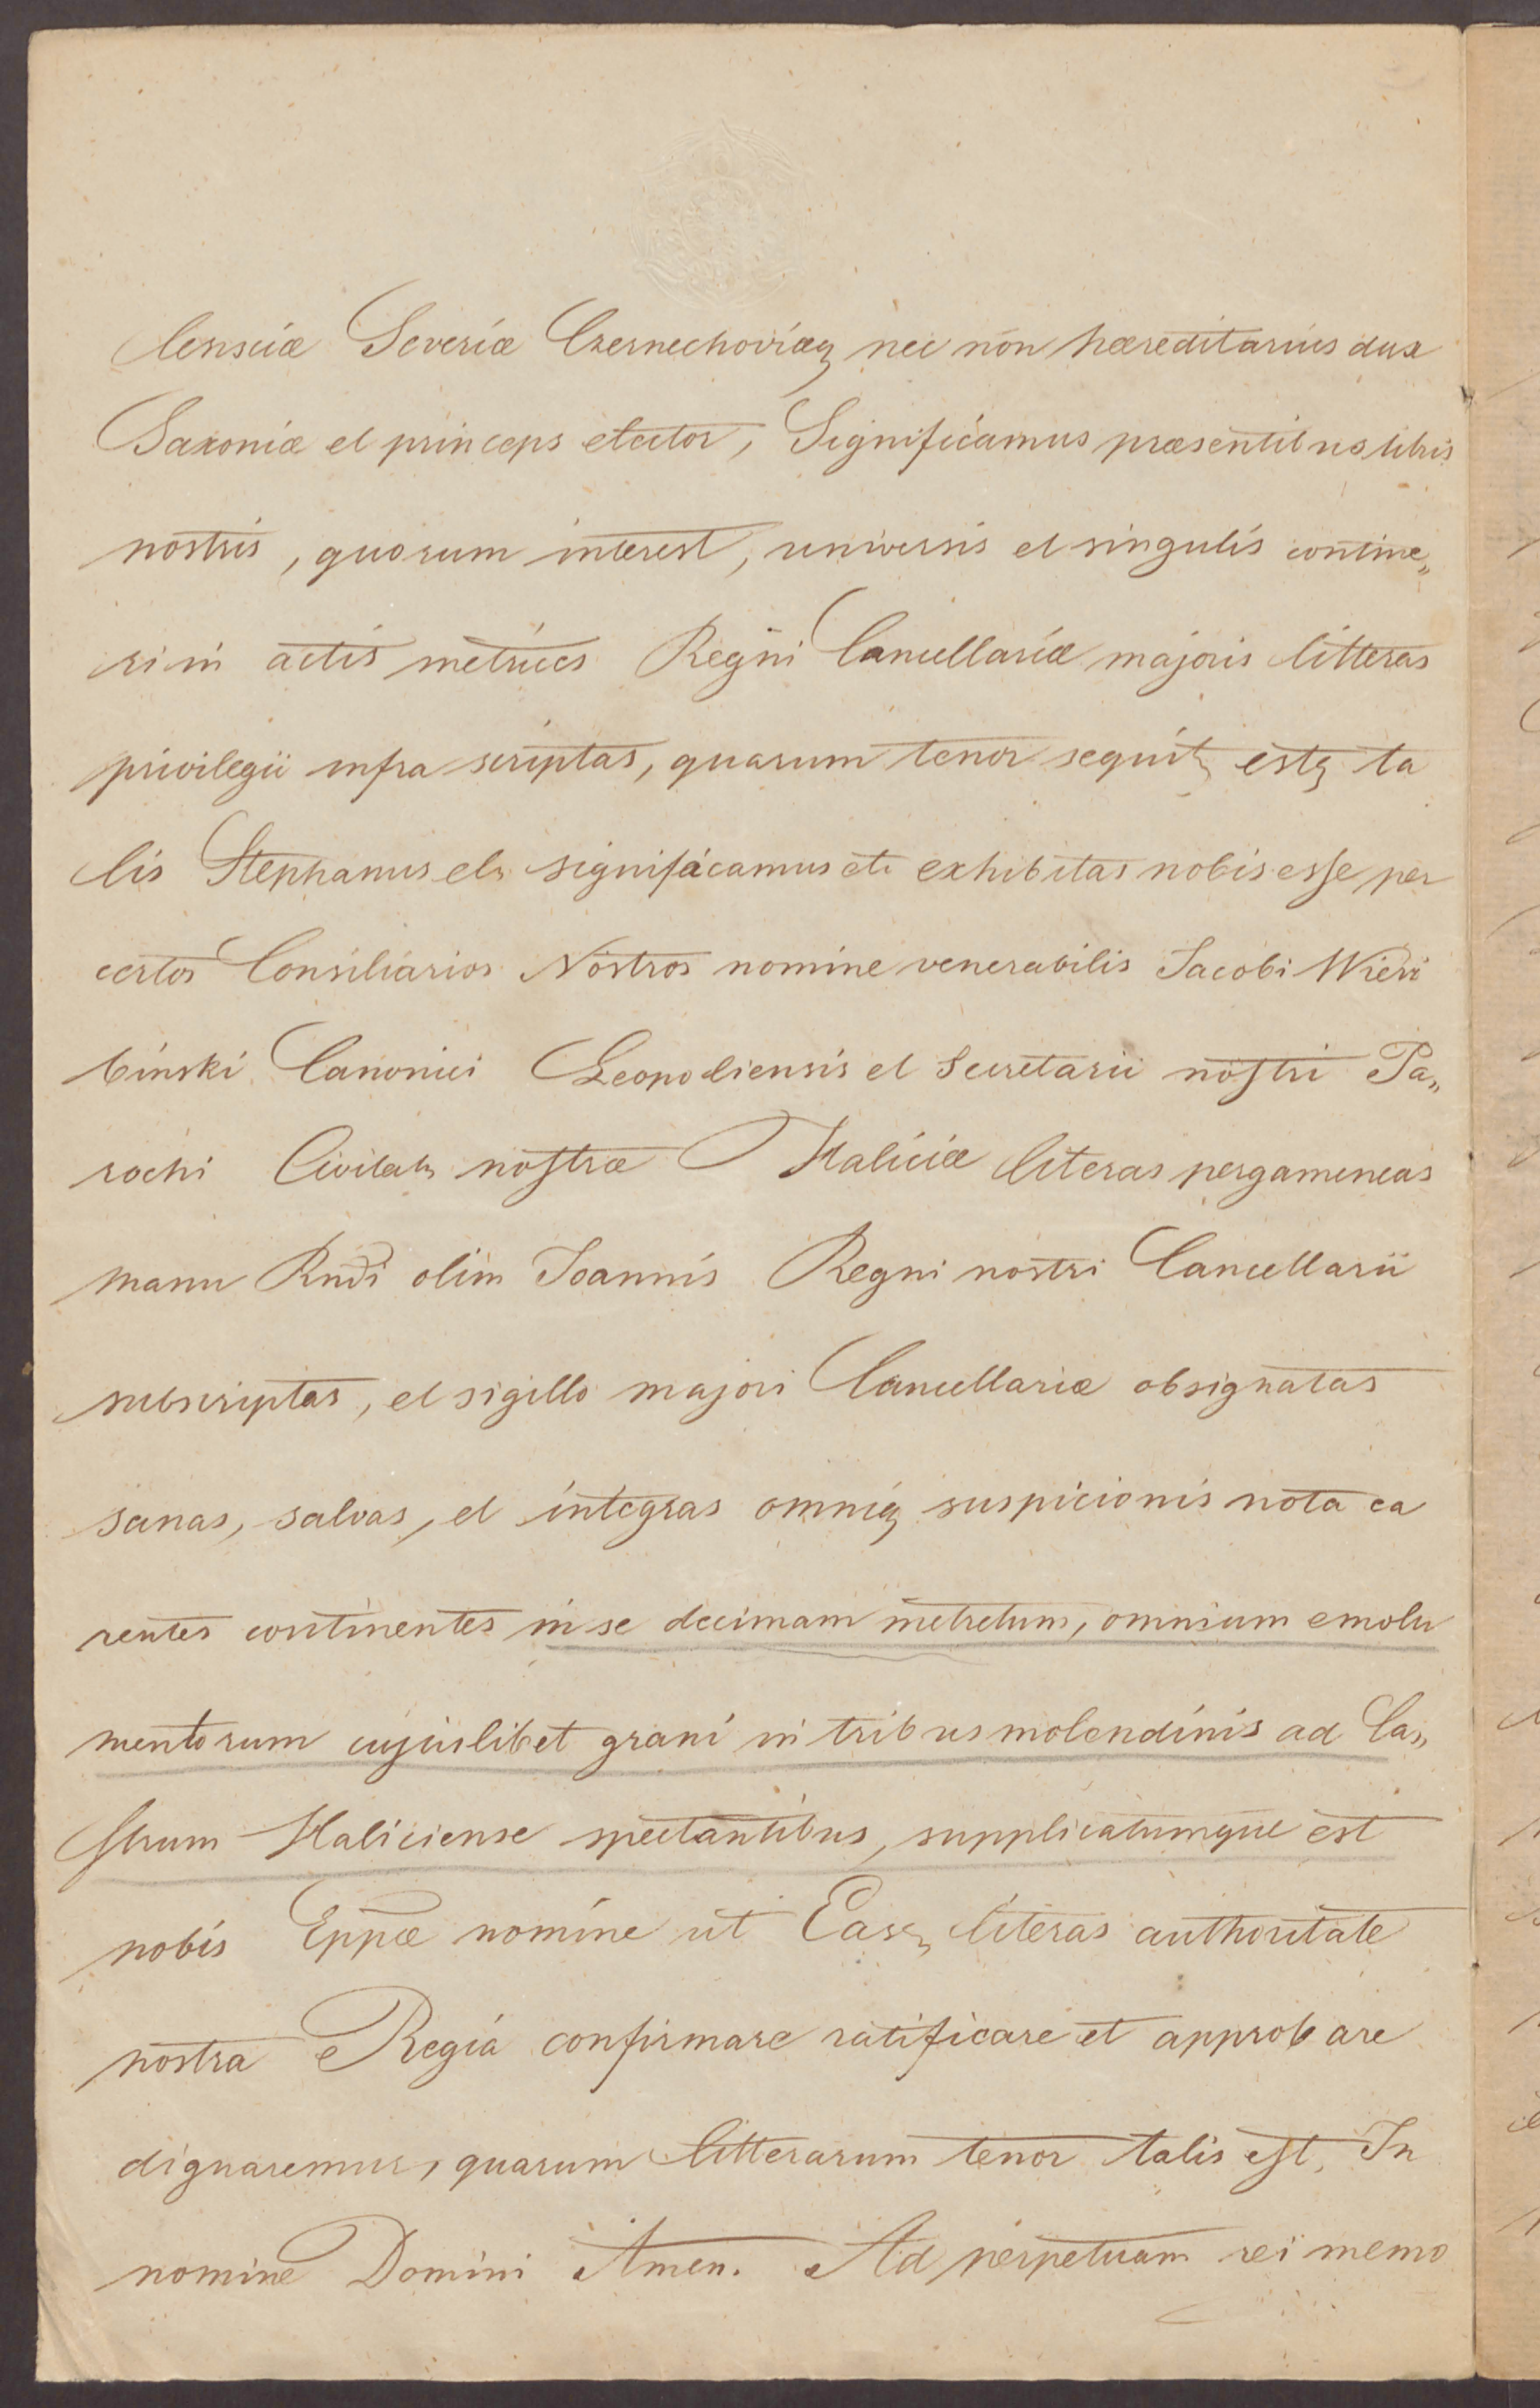 lensciæ Severiæ Czernechoviæq nec non hæreditarius dux
Saxoniæ et princeps elector, Significamus præsentibus libris
nostris, quorum interest, universis et singulis contine„
ri in actis metrices Regni Cancellariæ majoris litteras
privilegii infra scriptas, quarum tenor sequit estq ta
lis Stephanus etc significamus etc exhibitas nobis esse per
certos Consiliarios Nostros nomine venerabilis Jacobi Wierz
binski Canonici Leopoliensis et Secretarii nostri Pa„
rochi Civitats nostræ Haliciæ literas pergameneas
manu Rndi olim Joannis Regni nostri Cancellarii
subscriptas, et sigillo majori Cancellariæ obsignatas
sanas, salvas, et integras omniq suspicionis nota ca
rentes continentes in se decimam metretum, omnium emolu
mentorum cujuslibet grani in tribus molendinis ad Ca„
strum Haliciense spectantibus, supplicatumque est
nobis Eppæ nomine ut Easq literas authoritate
nostra Regia confirmare ratificare et approbare
dignaremur, quarum litterarum tenor talis est, In
nomine Domini Amen. Ad perpetuam rei memo